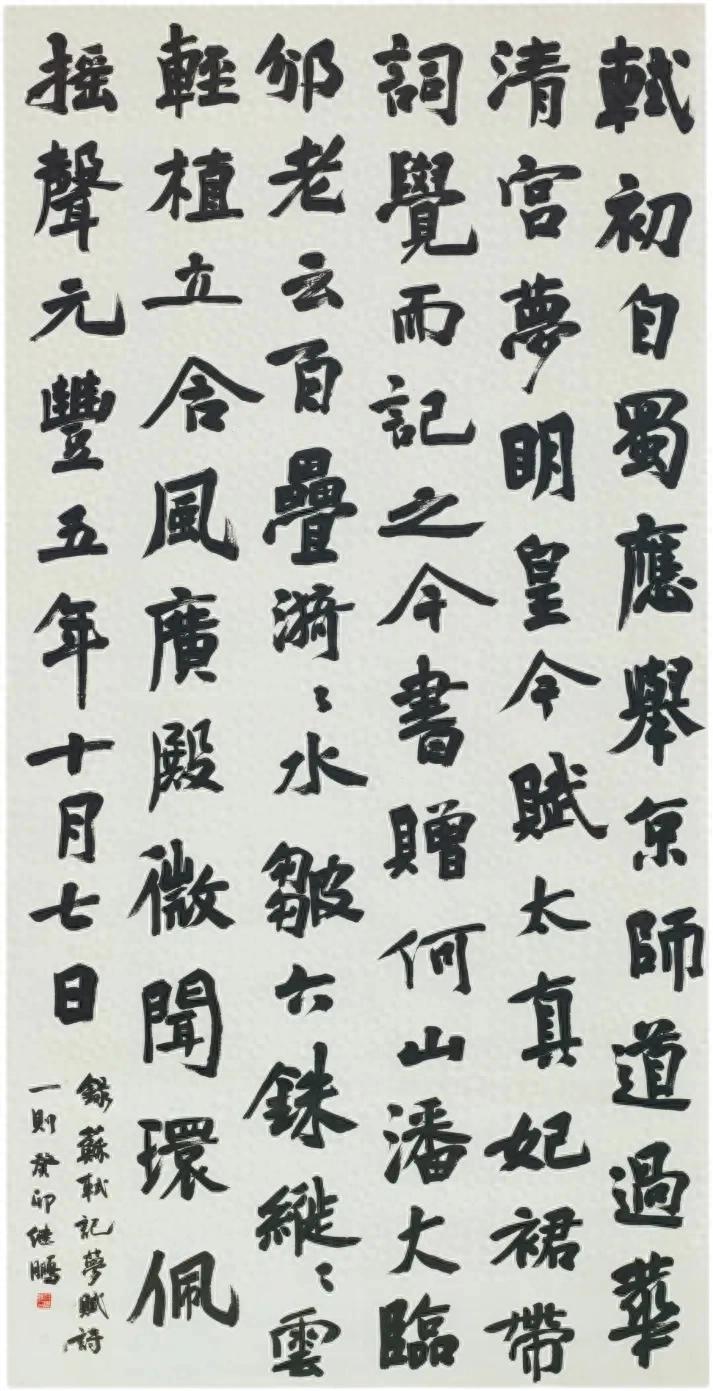 軾初自蜀應舉京師道過華
清宫夢明皇令賦太真妃裙帶
詞覺而記之今書贈何山潘大臨
邠老云百疊漪〻水皺六銖縰〻雲
輕植立含風廣殿微聞環佩
摇聲元豐五年十月七日
錄蘇軾記夢賦詩
一則癸卯继鵬